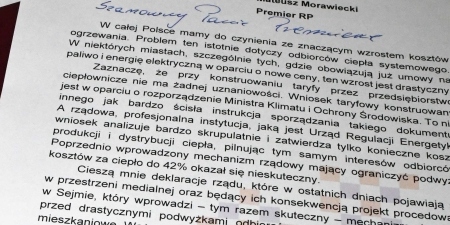 Mateusz Morawiecki
Premier RP
Szanowny Panie Premierze
W całej Polsce mamy do czynienia ze znaczącym wzrostem kosztów
ogrzewania. Problem ten istotnie dotyczy odbiorców ciepła systemowego.
W niektórych miastach, szczególnie tych, gdzie obowiązują już umowy na
paliwo i energię elektryczną w oparciu o nowe ceny, ten wzrost jest drastyczny
Zaznaczę, że przy konstruowaniu taryfy przez przedsiębiorstwo
ciepłownicze nie ma żadnej uznaniowości. Wniosek taryfowy konstruowany
jest w oparciu o rozporządzenie Ministra Klimatu i Ochrony Środowiska. To ni
innego jak bardzo ścisła instrukcja sporządzania takiego dokumentu
A rządowa, profesjonalna instytucja, jaką jest Urząd Regulacji Energetyk
wniosek analizuje bardzo skrupulatnie i zatwierdza tylko konieczne kosz
produkcji i dystrybucji ciepła, pilnując tym samym interesów odbiorcó
Poprzednio wprowadzony mechanizm rządowy mający ograniczyć podwyż
kosztów za ciepło do 42% okazał się nieskuteczny.
Cieszą mnie deklaracje rządu, które w ostatnich dniach pojawiają
w przestrzeni medialnej oraz będący ich konsekwencją projekt procedowa
w Sejmie, który wprowadzi – tym razem skuteczny – mechanizm
przed drastycznymi podwyżkami
mieszkaniowe. W